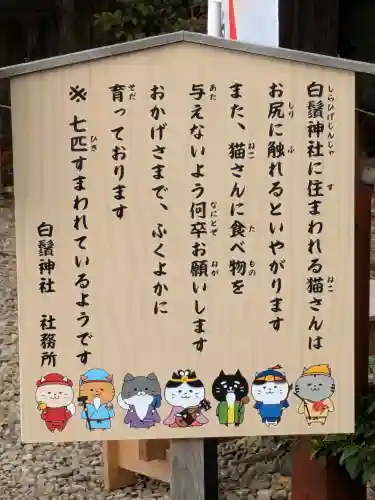 白鬚神社に住まわれる猫さんは
お尻に触れるといやがります
また、猫さんに食べ物を
与えないよう何卒お願いします
おかげさまで、ふくよかに
育っております
※ 七匹すまわれているようです
白鬚神社 社務所